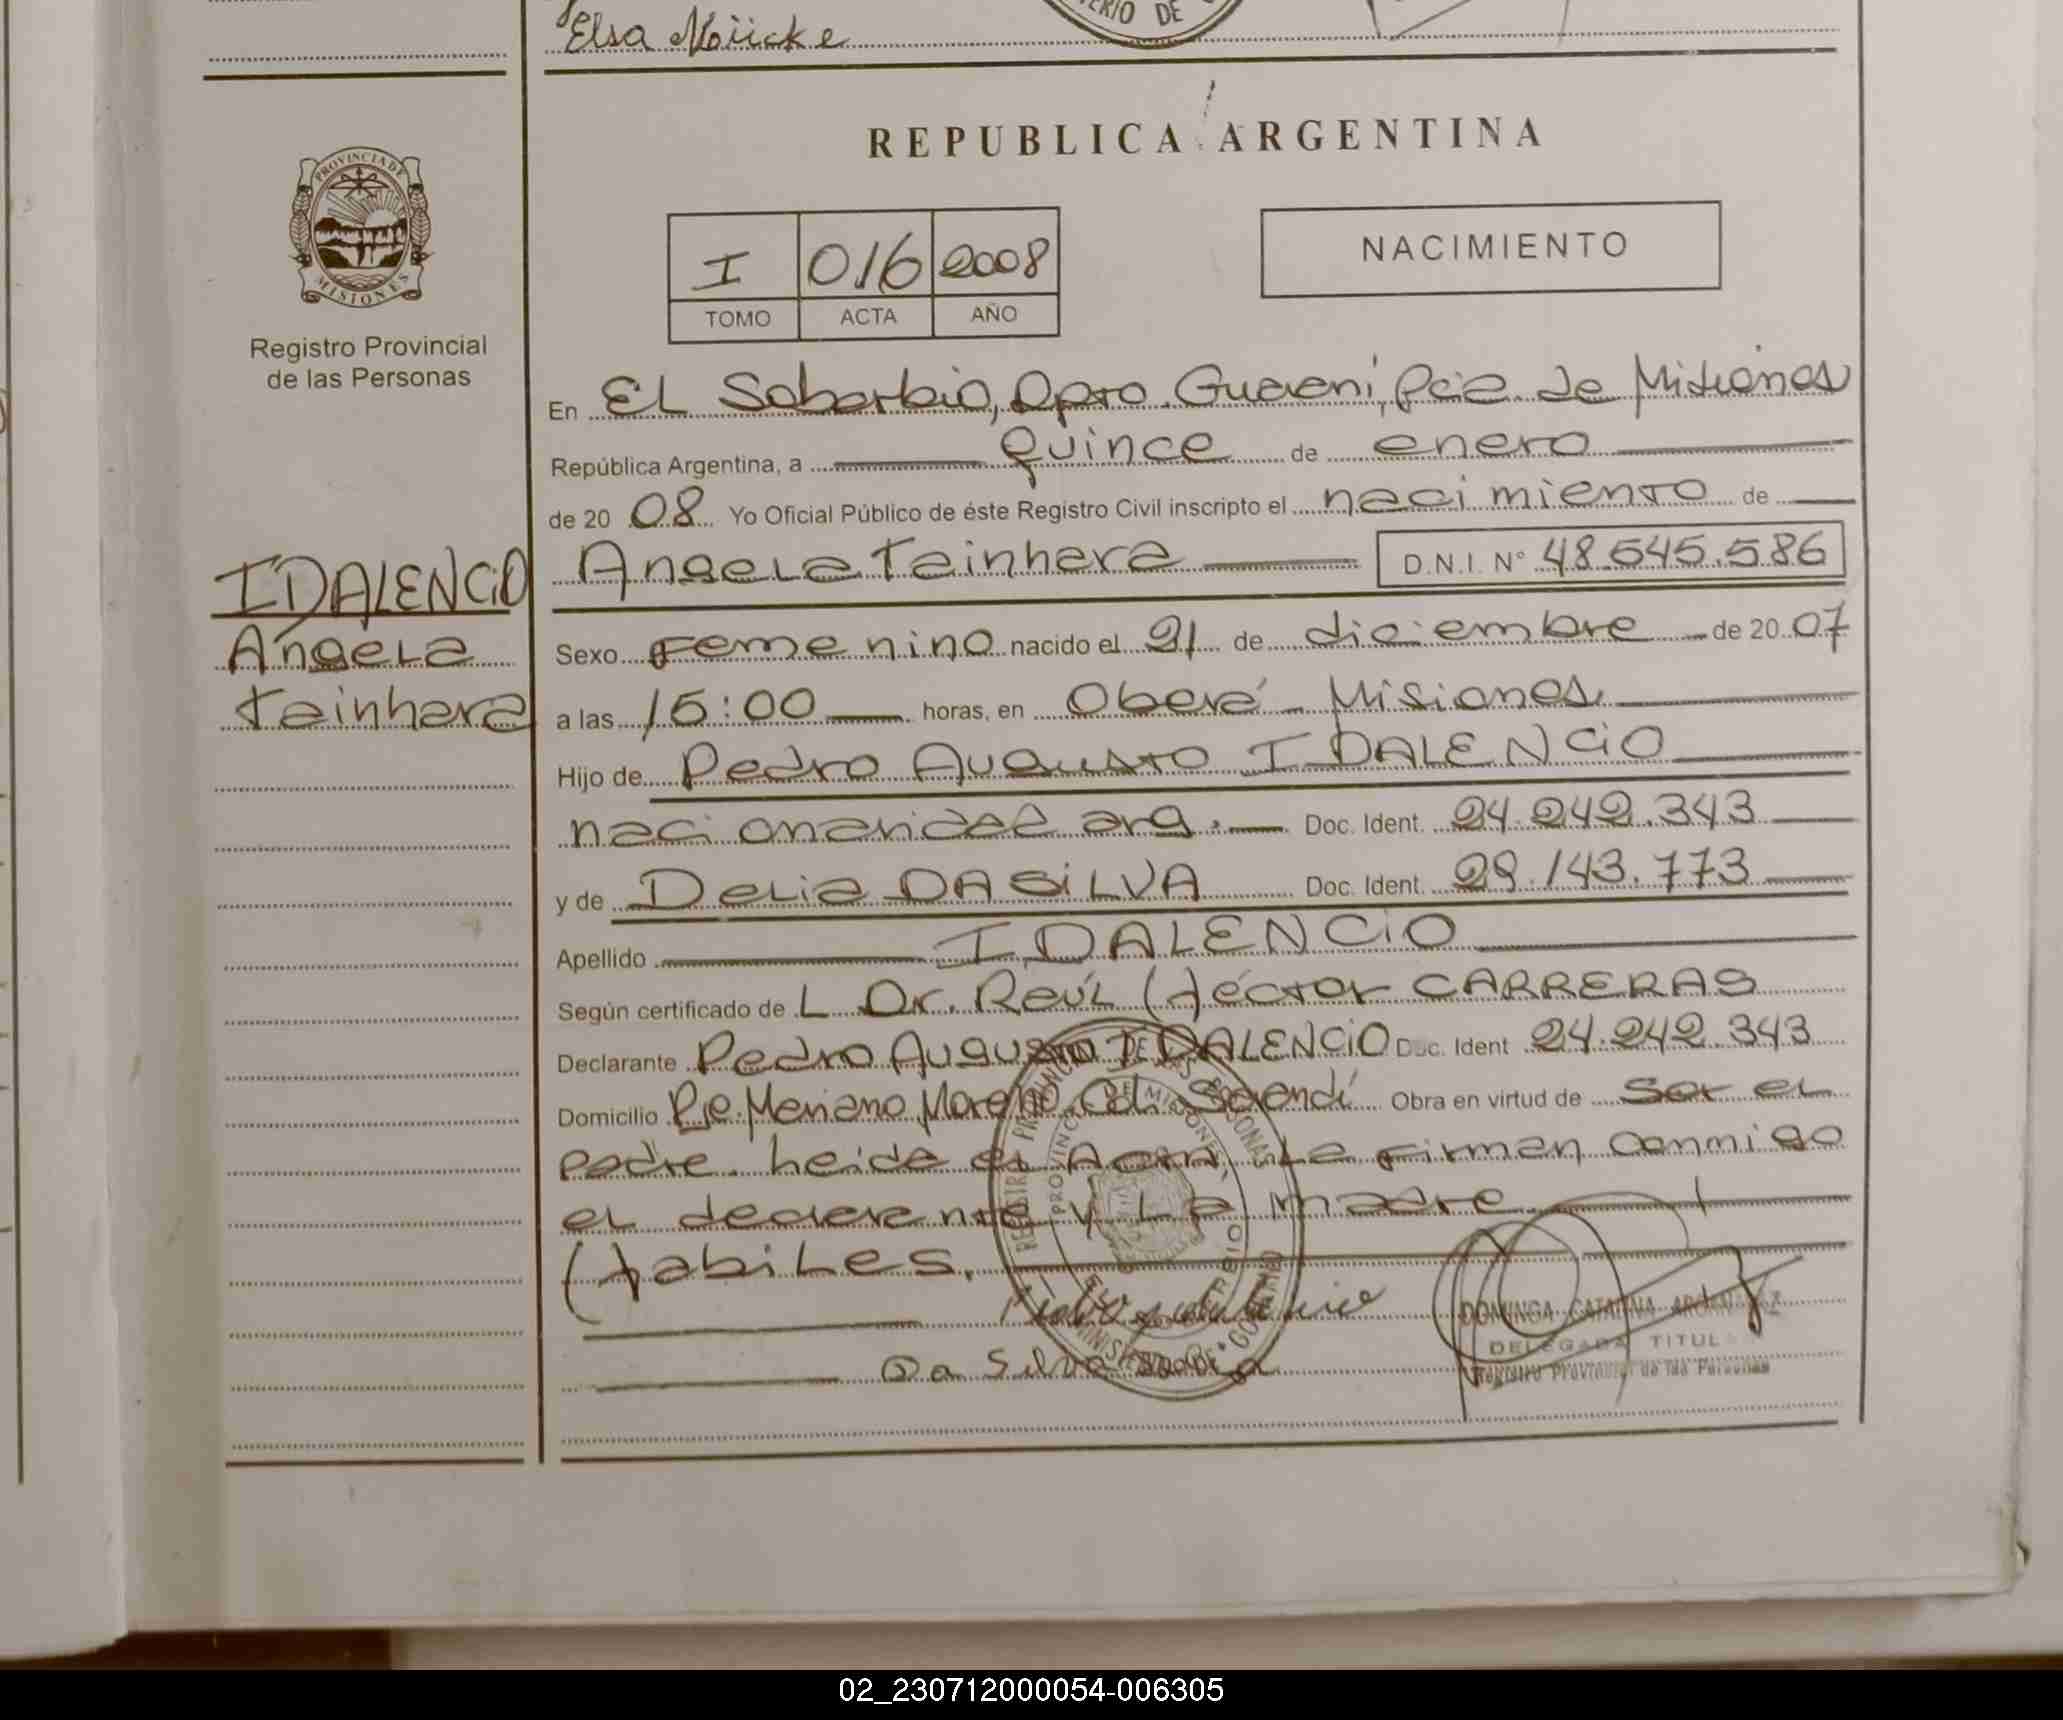 Elsa Nöicke
ERIO DE
PROVINCIA DE
MISIONES
Registro Provincial
de las Personas
REPUBLICA ARGENTINA
I 016 2008
TOMO ACTA AÑO
NACIMIENTO
En EL Soberbio, Dpto. Guaraní, Pcia. de Misiones
República Argentina, a quince de enero
de 20 08 Yo Oficial Público de éste Registro Civil inscripto el nacimiento de
Angela Tainhara D.N.I. Nº 48.545.586
IDALENCIO
Angela
Tainhara
Sexo Femenino nacido el 21 de diciembre de 20 07
a las 15:00 horas, en Oberá - Misiones
Hijo de Pedro Augusto IDALENCIO
nacionalidad arg. Doc. Ident. 24.242.343
y de Delia DA SiLVA Doc. Ident. 29.143.773
Apellido IDALENCIO
Según certificado de L Dr. Raúl Héctor CARRERAS
Declarante Pedro Augusto IDALENCIO Doc. Ident 24.242.343
Domicilio Pje. Mariano Moreno Col. Sarandí Obra en virtud de Ser el
padre. Leida el Acta, La firman conmigo
el declarante y La madre
Habiles.
Da Silva Delia
DOMINGA CATALINA
DELEGADA TITUL
Registro Provincial de las Personas
02_230712000054-006305